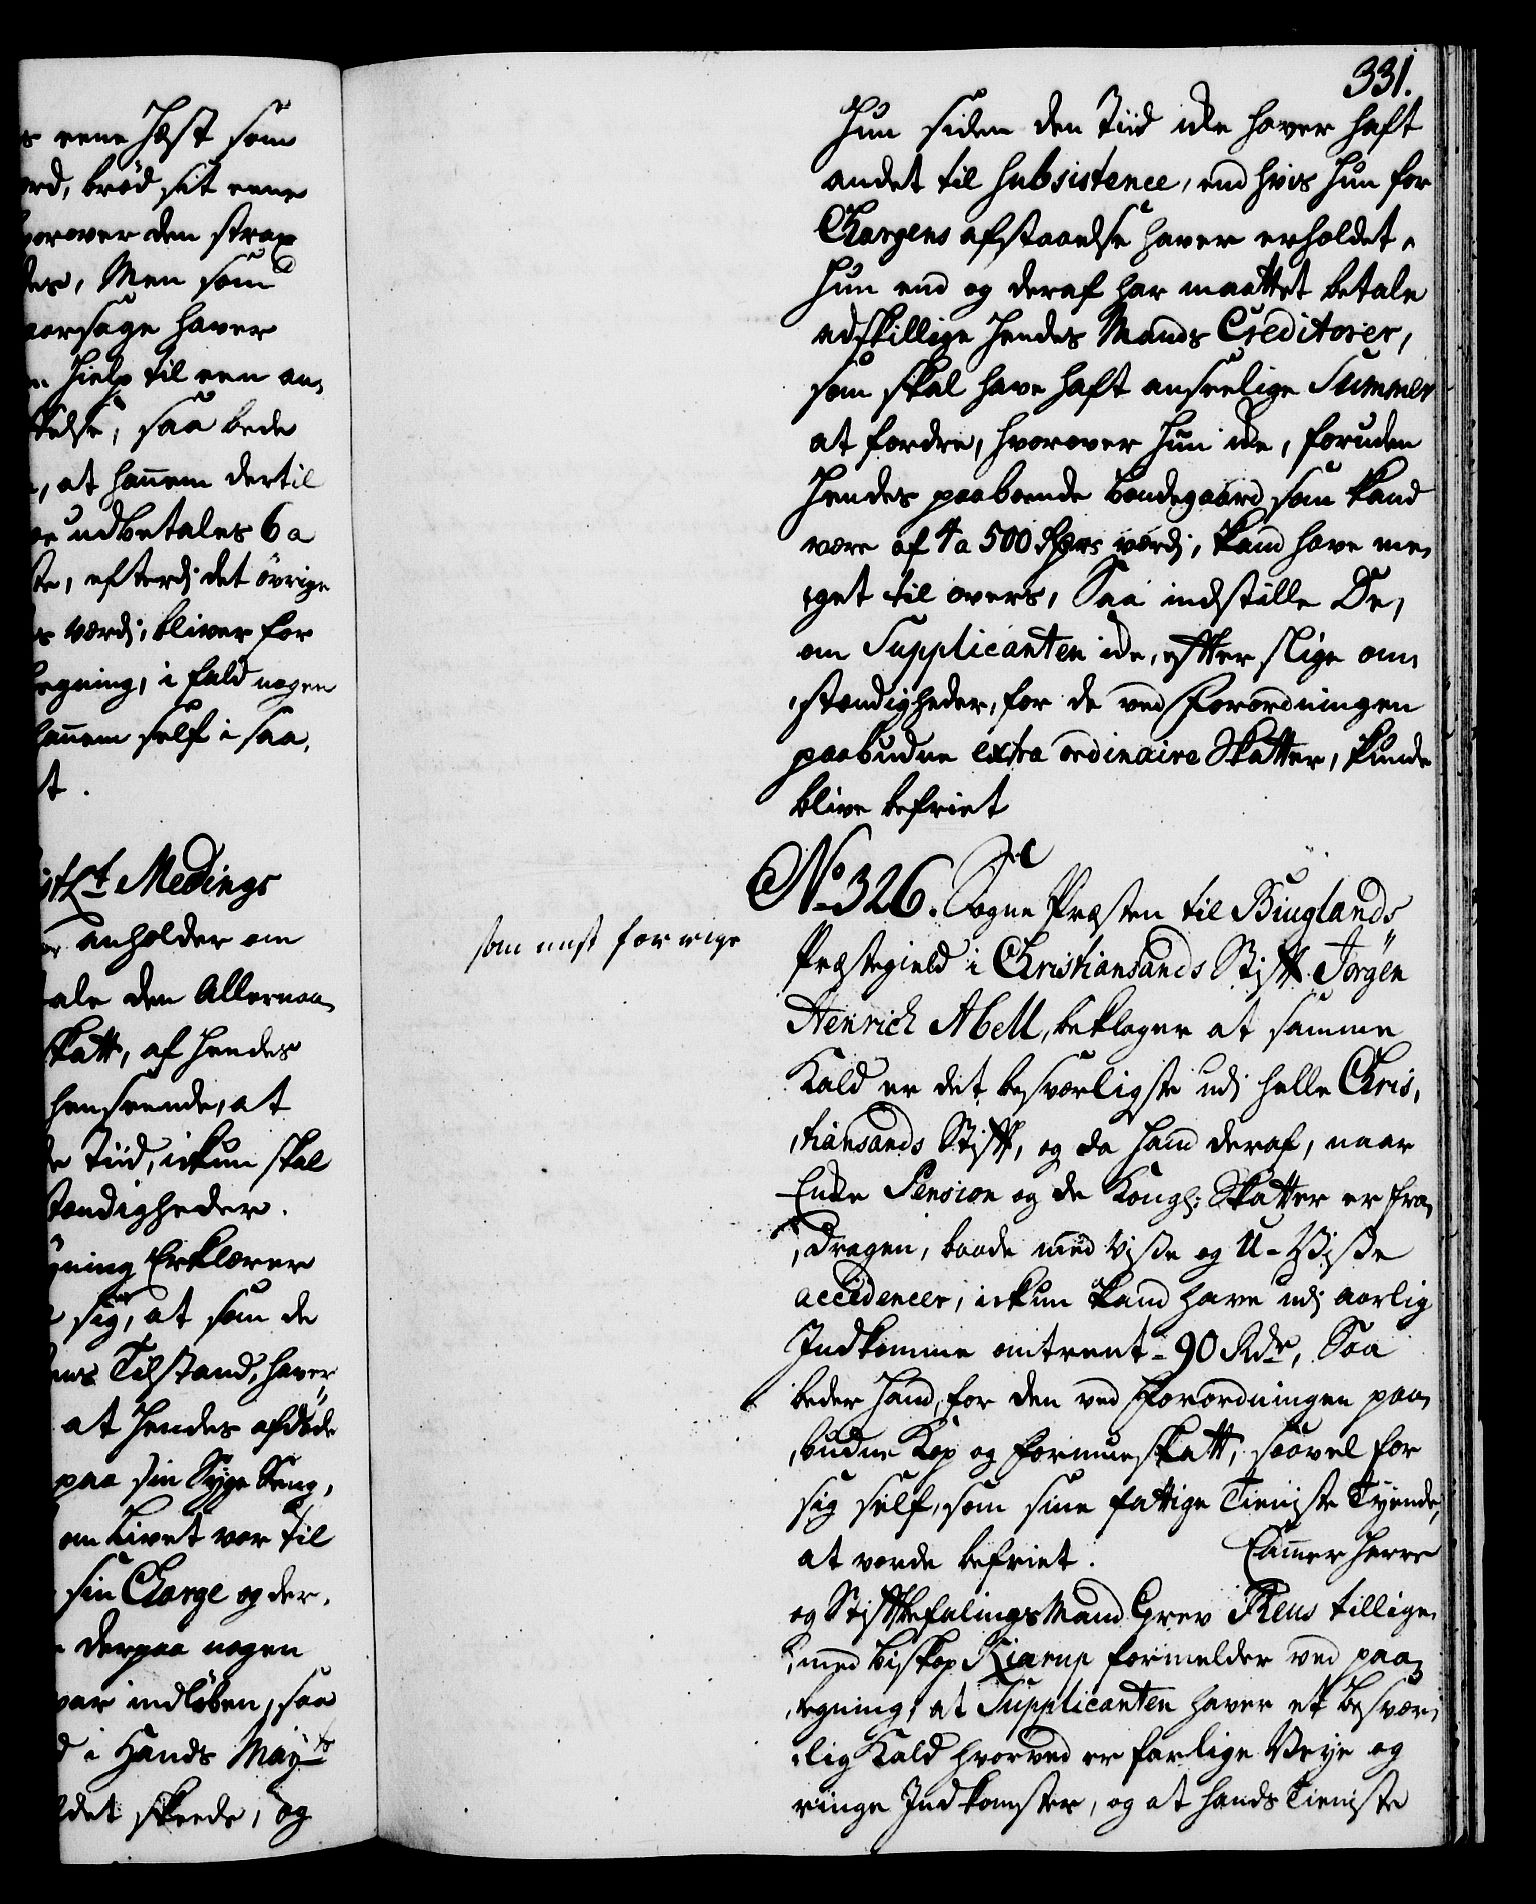 s eene Hest som
ord, brød sit eene
hvorover den strax
des, Men som
aarsage haver
n Hielp til een an,
telse, saa bede
, at hannem dertil
ve udbetales 6 a
ste, efterdj det övrige
s værdj, bliver for
tegning, i fald nogen
hannem self i saa,
t.
Medings
anholder om
tale den Allernaa,
skatt, af Hendes
henseende, at
de Tiid, ickun skal
stændigheder.
gning Erklærer
sig, at som de
ens Tilstand, haver
at Hendes afdøde
paa sin Syge Seng,
om Livet var til
sin Charge og der,
derpaa nogen
var indløben, saa
d i Hands Mayts
ldet skeede, og
331.
Hun siden den Tiid icke haver haft
andet til Subsistence, end hvis Hun for
Chargens afstaaelse haver erholdet,
Hun end og deraf har maattet betale
adskillige Hendes Mands Creditorer,
som skal have haft anseelige Summer
at fordre, hvorover Hun icke, foruden
Hendes paaboende Bondegaard som kand
være af 4 a 500 Rdrs værdj, kand have me,
,get til overs, Saa indstille De,
om Supplicanten icke, efter slige om,
,stændigheder, for de ved Forordningen
paabudne extra ordinaire Skatter, kunde
blive befriet
No 326. Sogne Præsten til Biuglands
som nest forrige
Præstegield i Christiansands Stift Jörgen
Henrich Abell, beklager at samme
Kald er det besværligste udj heele Chris,
,tiansands Stift, og da Hand deraf, naar
Encke Pension og de Kongl: Skatter er fra,
,dragen, baade med Visse og U-Visse
accidencer, ickun kand have udj aarlig
Indkomme omtrent - 90 Rdr, Saa
beder Hand, for den ved Forordningen paa,
,budne Kop og Formueskatt, saavel for
sig self, som sine fattige Tieniste Tyende,
at vorde befriet. Cammer Herre
og Stiftbefalings Mand Grev Reus tillige,
,med Biskop Kiærup formelder ved paa,
,tegning, at Supplicanten haver et besvær,
,lig Kald hvorved er farlige Veye og
ringe Indkomster, og at hands Tieniste